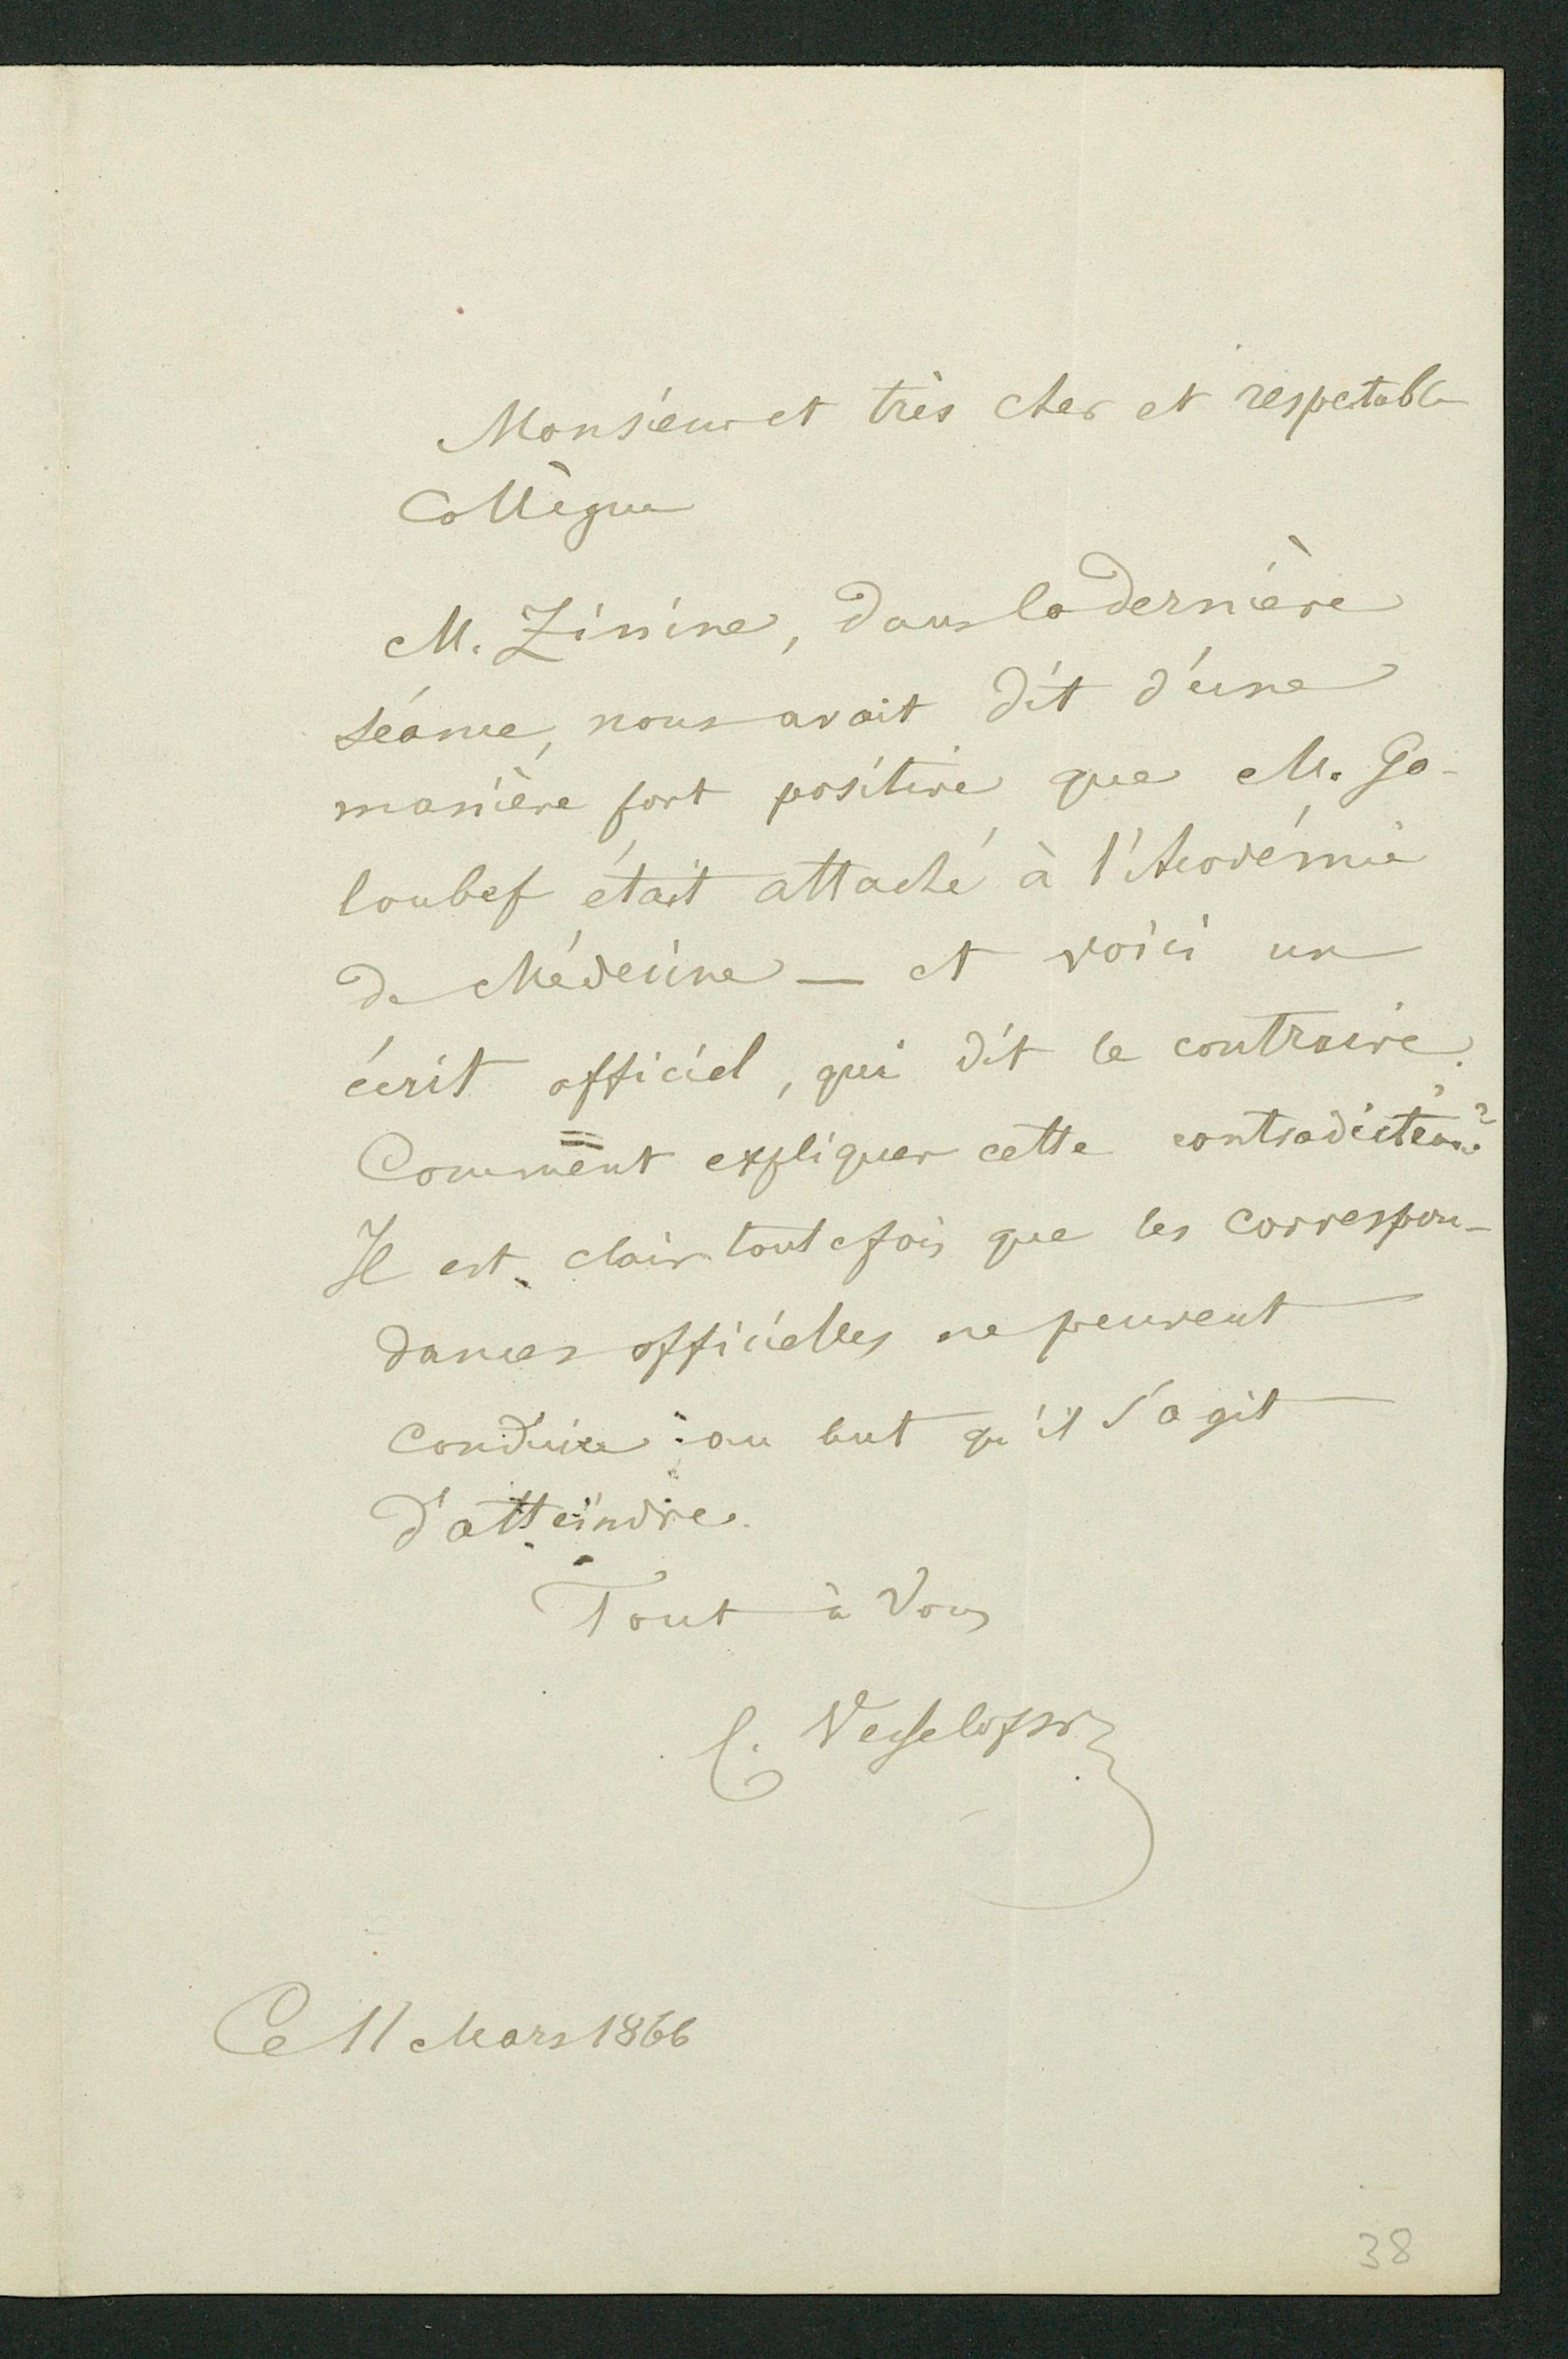 Monsieur et très cher et respectable
Collègue
M. Zinine, dans la dernière
séance, nous avait dit d'une
manière fort positive que M. Go-
loubef était attaché à l'Académie
de Médecine — et voici un
écrit officiel, qui dit le contraire.
Comment expliquer cette contradiction?
Il est clair toutefois que les correspon-
dances officielles ne peuvent
conduire au but qu'il s'agit
d'atteindre.
Tout à Vous
C. Vesselofski
Ce 11 Mars 1866
38